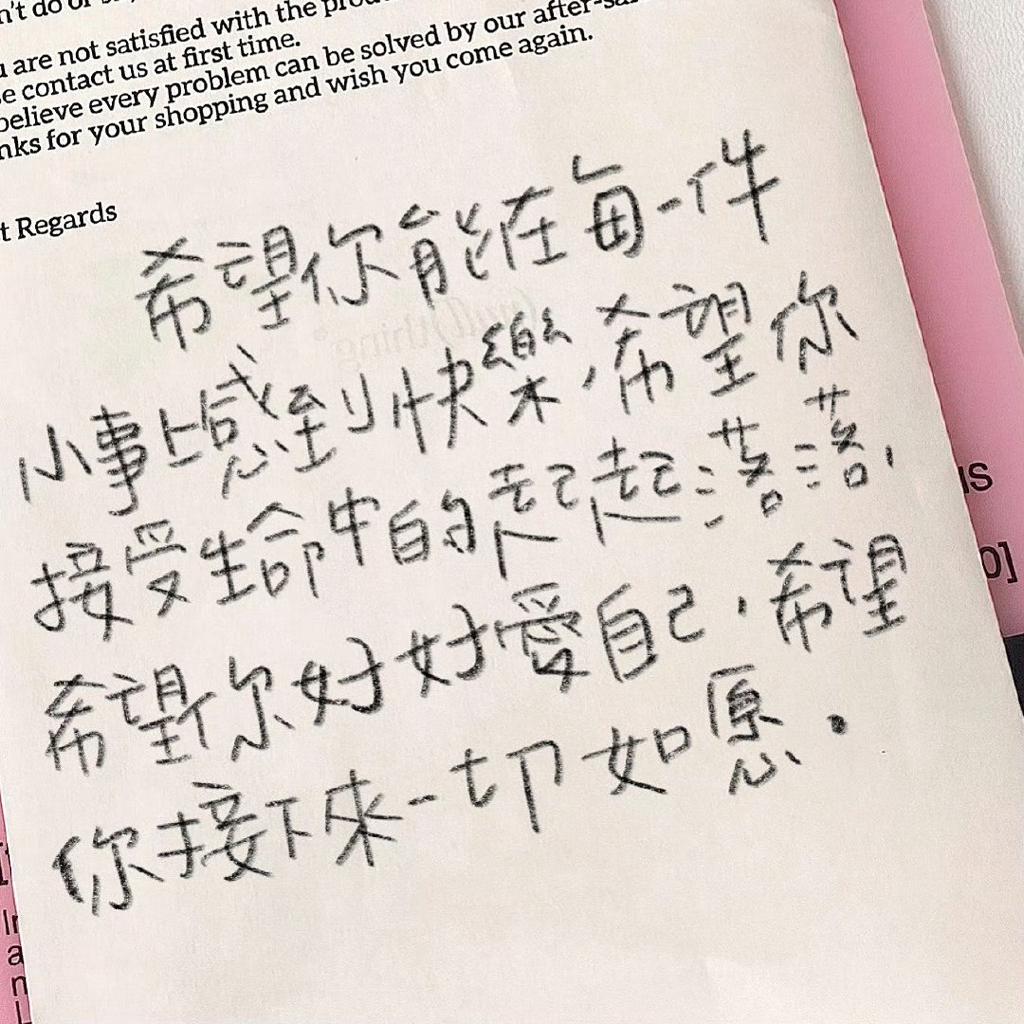 n't do or
are not satisfied with the
e contact us at first time.
believe every problem can be solved by our after-sal
nks for your shopping and wish you come again.
t Regards
希望你能在每一件
小事上感到快樂，希望你
接受生命中的起起落落，
希望你好好愛自己，希望
你接下來一切如愿．
us
0]
In
a
n
L